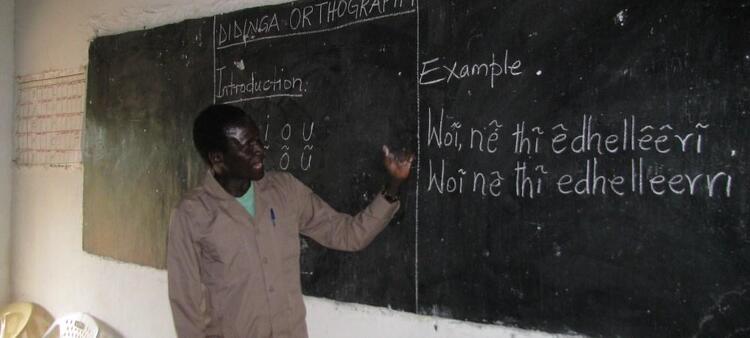 DIDINGA ORTHOGRAPHY
Introduction.
i o u
õ ũ
Example.
Woĩ, nê thĩ êdhellêêrĩ
Woĩ nê thĩ edhelleerri